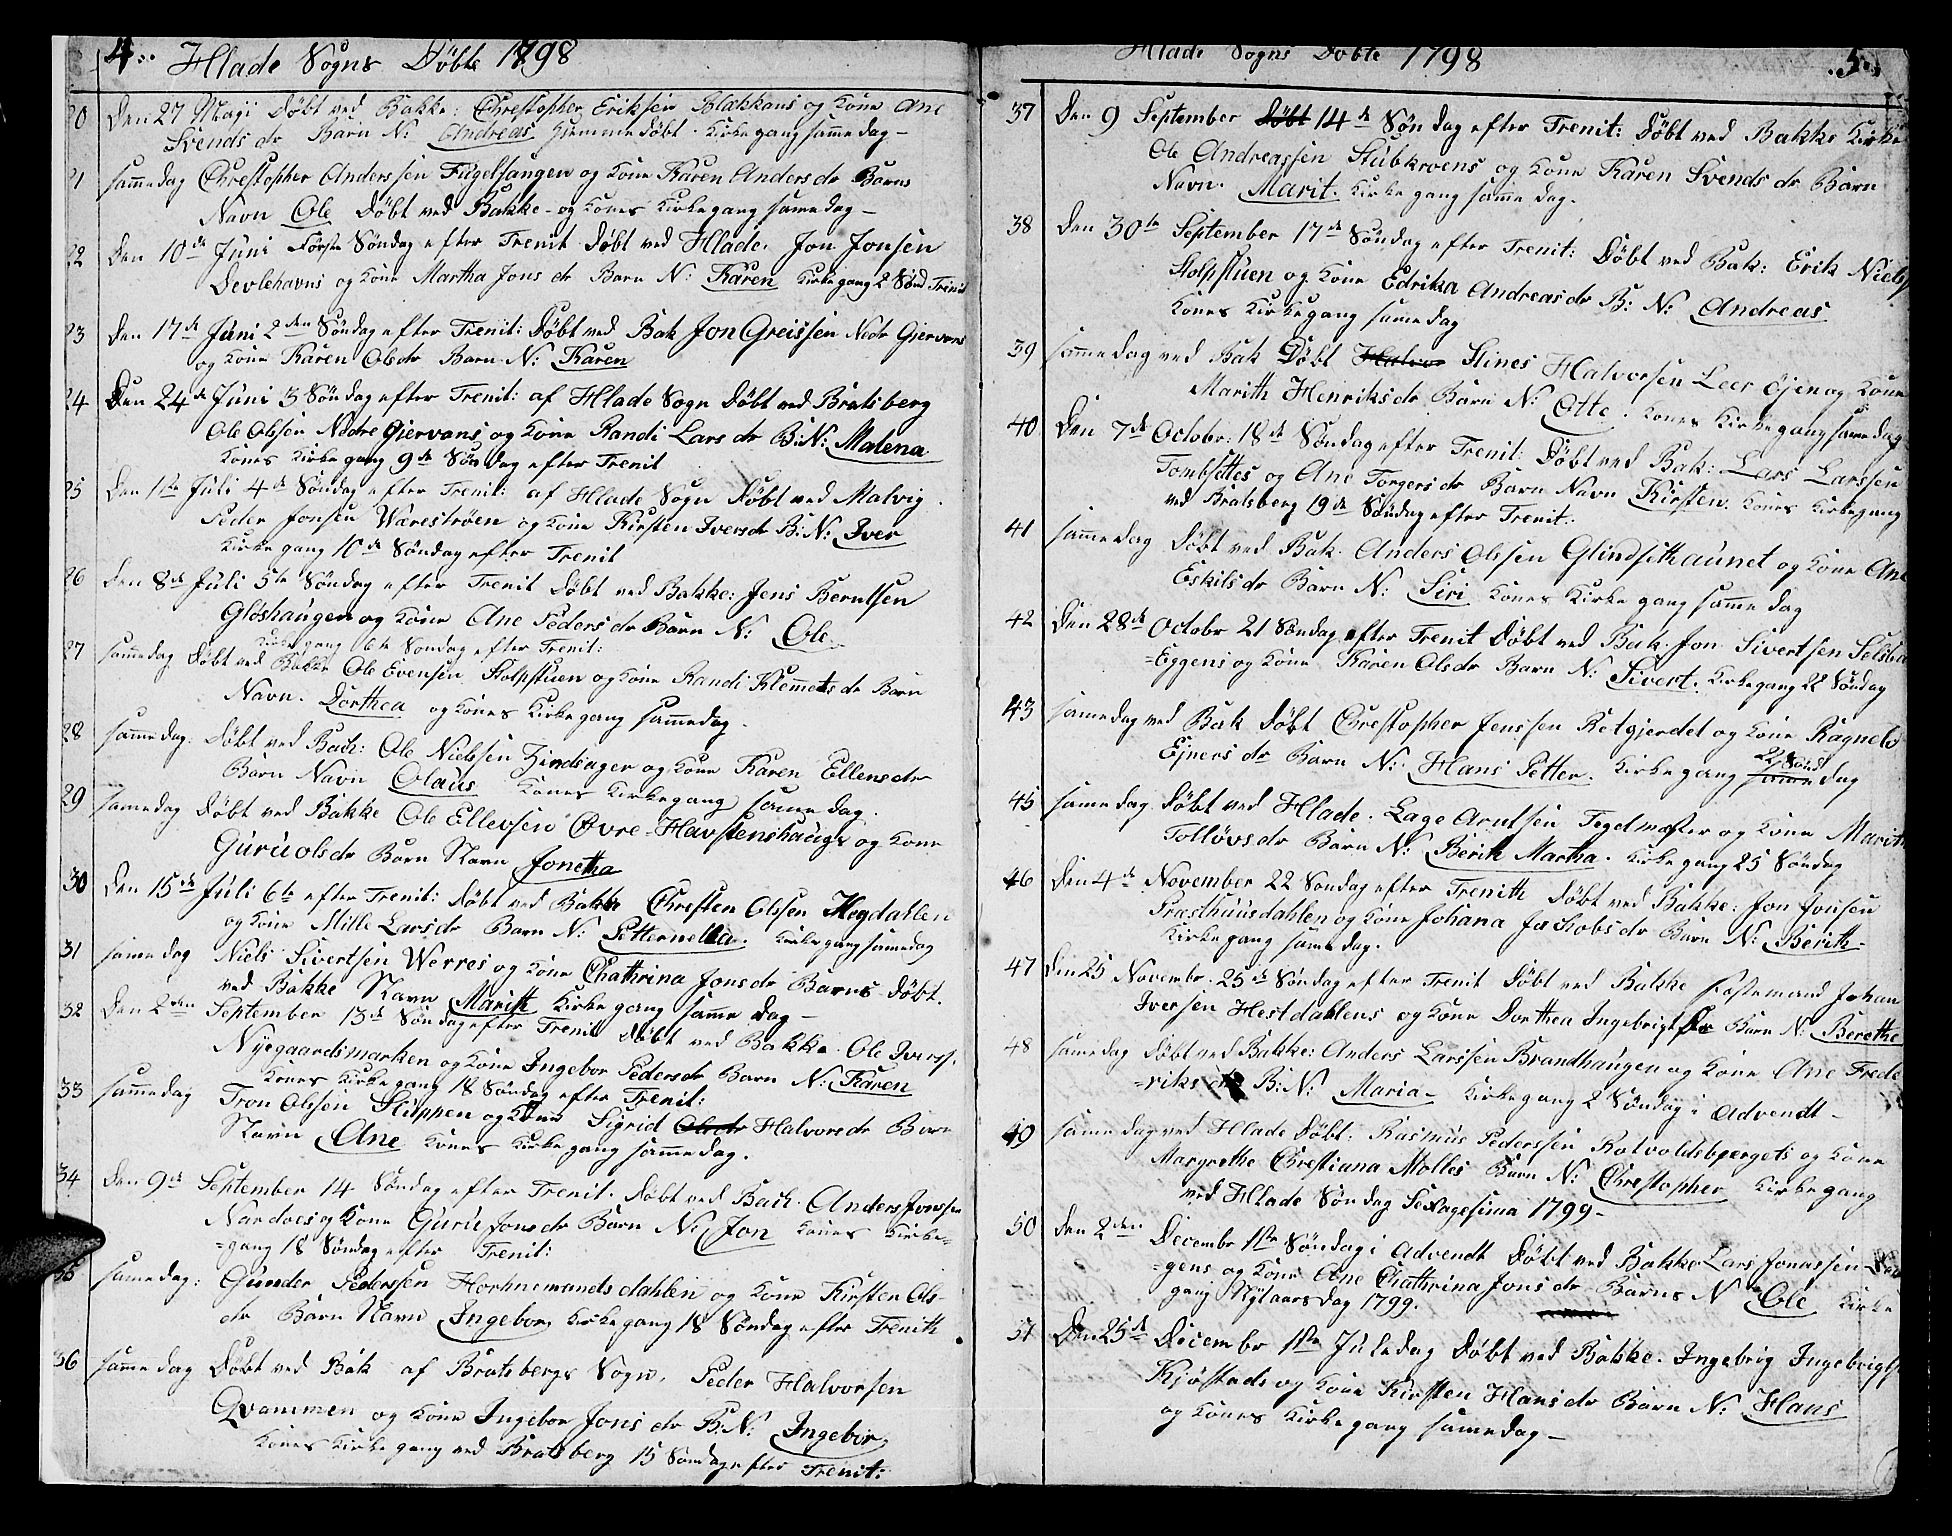 4.. Hlade Sogns Döbte 1798
20 Den 27 Maji Döbt ved Bakke: Chrestopher Eriksen Blækkans og kone Ane
Svends dr Barn N: Andreas hjemmedöbt. Kirkegang samme dag -
21 samme dag Chrestopher Anderssen Fugelsangen og kone Karen Anders dr Barns
Navn Ole Döbt ved Bakke - og kones Kirkegang samedag -
22 Den 10de Juni Förste Söndag efter Trenit. Döbt ved Hlade. Jon Jonsen
Devlehavns og kone Martha Jons dr Barn N: Karen Kirkegang 2 Sönd. Trenit
23 Den 17de Juni 2den Söndag efter Trenit: Döbt ved Bak Jon Greissen Nedr Gjervans
og kone Karen Olsdr Barn N: Karen
24 Den 24de Juni 3 Söndag efter Trenit: af Hlade Sogn Döbt ved Bratsberg
Ole Olssen Nedre Gjervans og kone Randi Lars dr B: N: Malena
kones Kirkegang 9de Söndag efter Trenit
25 Den 1ste Juli 4de Söndag efter Trenit: af Hlade Sogn Döbt ved Malvig.
Peder Jonsen Wæreströen og kone Kirsten Iversdr B: N: Iver
Kirkegang 10de Söndag efter Trenit
26 Den 8de Juli 5te Söndag efter Trenit Döbt ved Bakke: Jens Berntsen
Glöshaugen og kone Ane Peders dr Barn N: Ole.
Kirkegang 6te Söndag efter Trenit:
27 samme dag Döbt ved Bakke Ole Evensen Stolpstuen og kone Randi Klemmets dr Barn
Navn. Dorthea og kones Kirkegang sammedag.
28 samme dag. Döbt ved Bach: Ole Nielssen Lindsager og kone Karen Ellensdr
Barn Navn Olaus kones Kirkegang samme dag.
29 samedag Döbt ved Bakke Ole Ellevsen Övre-Havstenshaugs og kone
Guru olsdr Barn Navn Jonetha
30 Den 15de Juli 6te efter Trenit: Döbt ved Bakke Chresten Olssen Hegdahlen
og kone Mille Larsdr Barn N: Petternella. Kirkegang samedag
31 same dag Niels Sivertsen Werres og kone Chathrina Jonsdr Barns Döbt.
ved Bakke Navn Marith Kirkegang samme dag -
32 Den 2den September 13de Söndag efter Trenit Döbt ved Bakke. Ole Iverss.
Nyegaardsmarken og kone Ingebor Pedersdr Barn N: Karen
kones Kirkegang 18 Söndag efter Trenit:
33 sammedag Tron Olssen Sluppen og kone Sigrid Olsdr Halvorsdr Barn
Navn Ane kones Kirkegang sammedag.
34 Den 9de September 14 Söndag efter Trenit. Döbt ved Bach. Anders Jonssen
Nardoes og kone Guru Jonsdr Barn N: Jon kones Kirke=
=gang 18 Söndag efter Trenit:
35 samedag: Gunder Pederssen Hornemandsdahlen og kone Kirsten Ols-
dr Barn Navn Ingebor, Kirkegang 18 Söndag efter Trenith
36 samme dag Döbt ved Bak af Bratsbergs Sogn. Peder Halvorsen
Qvammen og kone Ingebor Jons dr B: N: Ingebor
kones Kirkegang ved Bratsberg 15 Söndag efter Trenit:
Hlade Sogns Döbte 1798 .5.
37 Den 9 September Döbt 14de Söndag efter Trenit: Döbt ved Bakke Kirke
Ole Andreassen Stubkroens og kone Karen Svends dr Barn
Navn. Marit. Kirkegang samme dag.
38 Den 30te September 17de Söndag efter Trenit: Döbt ved Bak: Erik Niels
Stolpstuen og kone Edrika Andreasdr B: N: Andreas
kones Kirkegang samedag
39 samme dag ved Bak Döbt Halvor Stines Halvorsen Leer öjen og kone
Marith Henriksdr Barn N: Otte. kones Kirkegang samme dag
40 Den 7de Octobr: 18de Söndag efter Trenit: Döbt ved Bak: Lars Larssen
Tombsettes og Ane Torgers dr Barn Navn Kirsten. kones Kirkegang
ved Bratsberg 19de Söndag efter Trenit:
41 samme dag Döbt ved Bak. Anders Olssen Glindsethaunet og kone Ane
Eskilsdr Barn N: Siri kones Kirkegang samme dag
42 Den 28de Octobr 21 Söndag efter Trenit Döbt ved Bak. Jon Sivertsen Selsba
=Eggens og kone Karen Olsdr Barn N: Sivert. Kirkegang 22 Söndag
43 samedag ved Bak Döbt Chrestopher Jenssen Retgjerdet og kone Ragnele
Ejners dr Barn N: Hans Petter. Kirkegang same 22 Sönd dag
45 samedag Döbt ved Hlade. Lage Arntsen Tegelmester og kone Marith
Tollövsdr Barn N: Berit Martha. Kirkegang 25 Söndag
46 Den 4de November 22 Söndag efter Trenith Döbt ved Bakke: Jon Jonsen
Præsthuusdahlen og kone Johana Jackobsdr Barn N: Berith
Kirkegang samedag.
47 Den 25 Novembr. 25de Söndag efter Trenit Döbt ved Bakke Fæstemand Johan
Iversen Hestdahlens og kone Dorthea Ingebrigtsdr Barn N: Berethe
48 samedag Döbt ved Bakke: Anders Larssen Brandhaugen og kone Ane Frede
=riks dr B: N: Maria - Kirkegang 2 Söndag i Advendt -
49 samme dag ved Hlade Döbt: Rasmus Pederssen Rotvoldsbergets og kone
Margrethe Chrestiana Molles Barn N: Chrestopher Kirkegang
ved Hlade Söndag Sexagesima 1799 -
50 Den 2den Decembr 1ste Söndag i Advendt Döbt ved Bakke Lars Jonassen
=gens og kone Ane Chathrina Jons dr Barns N Ole Kirke
gang Nytaarsdag 1799.
51 Den 25de Decembr 1ste Juledag Döbt ved Bakke. Ingebrig Ingebrigts
Kjöstads og kone Kirsten Hansdr Barn N: Hans
og kones Kirkegang samedag -